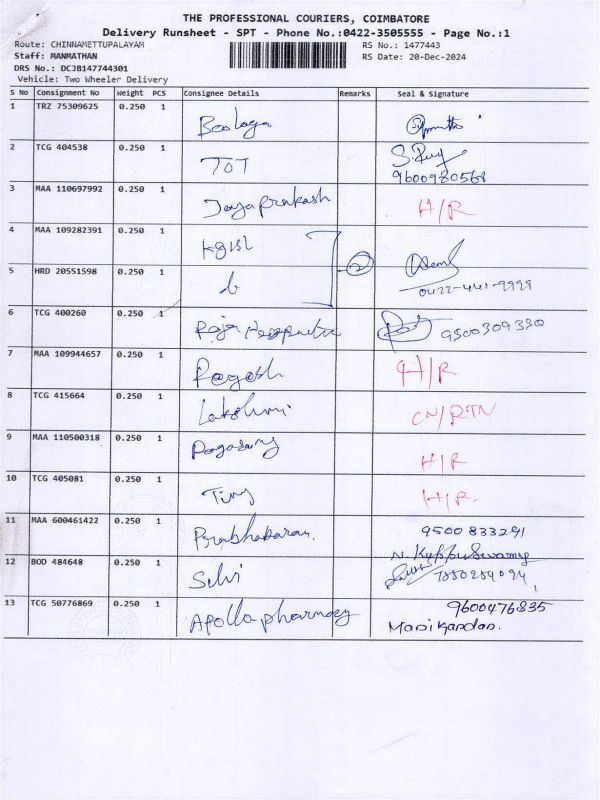 THE PROFESSIONAL COURIERS, COIMBATORE
Delivery Runsheet - SPT - Phone No.:0422-3505555 - Page No.:1
Route: CHINNAMETTUPALAYAM RS No.: 1477443
Staff: MANMATHAN RS Date: 20-Dec-2024
DRS No.: DCJB147744301
Vehicle: Two Wheeler Delivery
S No Consignment No Weight PCS Consignee Details Remarks Seal & Signature
1 TRZ 75309625 0.250 1
2 TCG 404538 0.250 1 TOT
9600980568
3 MAA 110697992 0.250 1 Jayaprakash H/R
4 MAA 109282391 0.250 1 KGISL
5 HRD 20551598 0.250 1 2
0422-441-9999
6 TCG 400260 0.250 1 Raja 9500309330
7 MAA 109944657 0.250 1 Ragesh H/R
8 TCG 415664 0.250 1 Lakshmi CN/RTN
9 MAA 110500318 0.250 1 H/R
10 TCG 405081 0.250 1 H/R
11 MAA 600461422 0.250 1 Prabhakaran. 9500833291
N. Kuppuswamy
12 BOD 484648 0.250 1 Selvi
13 TCG 50776869 0.250 1 Apollo pharmacy 9600476835
Manikandan.